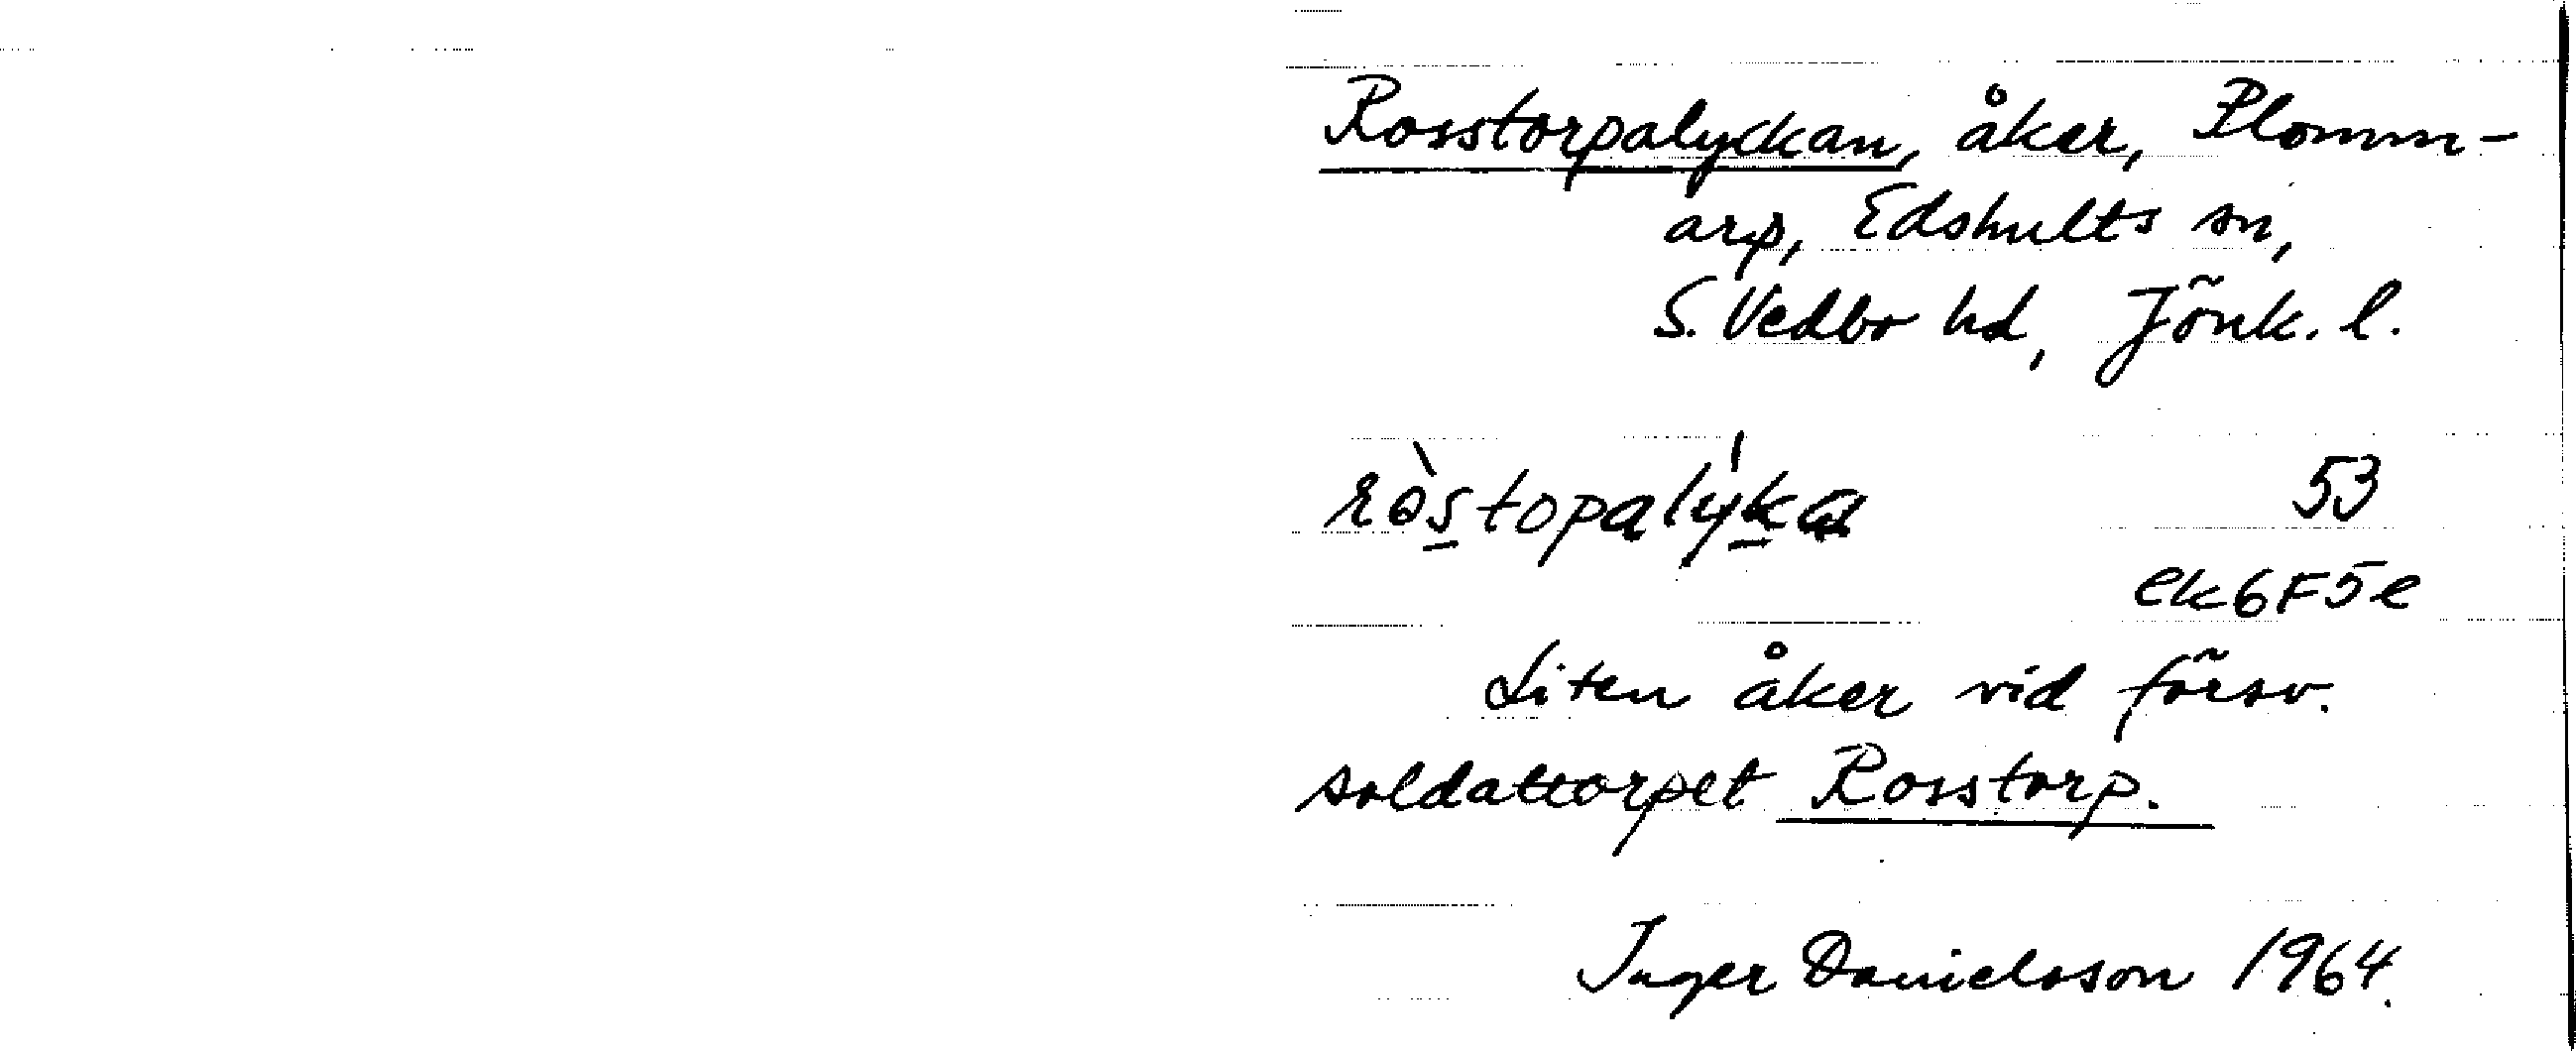 Rosstorpalyckan, åker, Plomm-
arp, Edshults sn,
S. Vedbo hd, Jönk. l.
ròstopalýka 53
ek6F5e
Liten åker vid försv.
soldattorpet Rosstorp.
Inger Danielsson 1964.